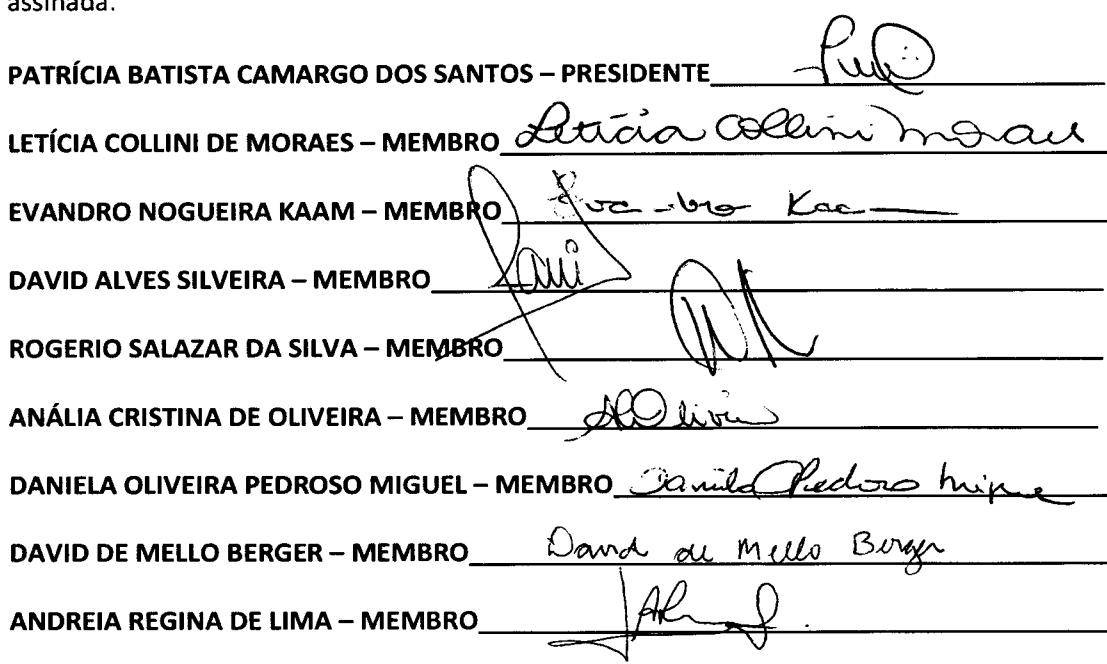 assinada.
PATRÍCIA BATISTA CAMARGO DOS SANTOS – PRESIDENTE
LETÍCIA COLLINI DE MORAES – MEMBRO Letícia Collini Moraes
EVANDRO NOGUEIRA KAAM – MEMBRO Evandro Kaam
DAVID ALVES SILVEIRA – MEMBRO
ROGERIO SALAZAR DA SILVA – MEMBRO
ANÁLIA CRISTINA DE OLIVEIRA – MEMBRO
DANIELA OLIVEIRA PEDROSO MIGUEL – MEMBRO Daniela Pedroso Miguel
DAVID DE MELLO BERGER – MEMBRO David de Mello Berger
ANDREIA REGINA DE LIMA – MEMBRO